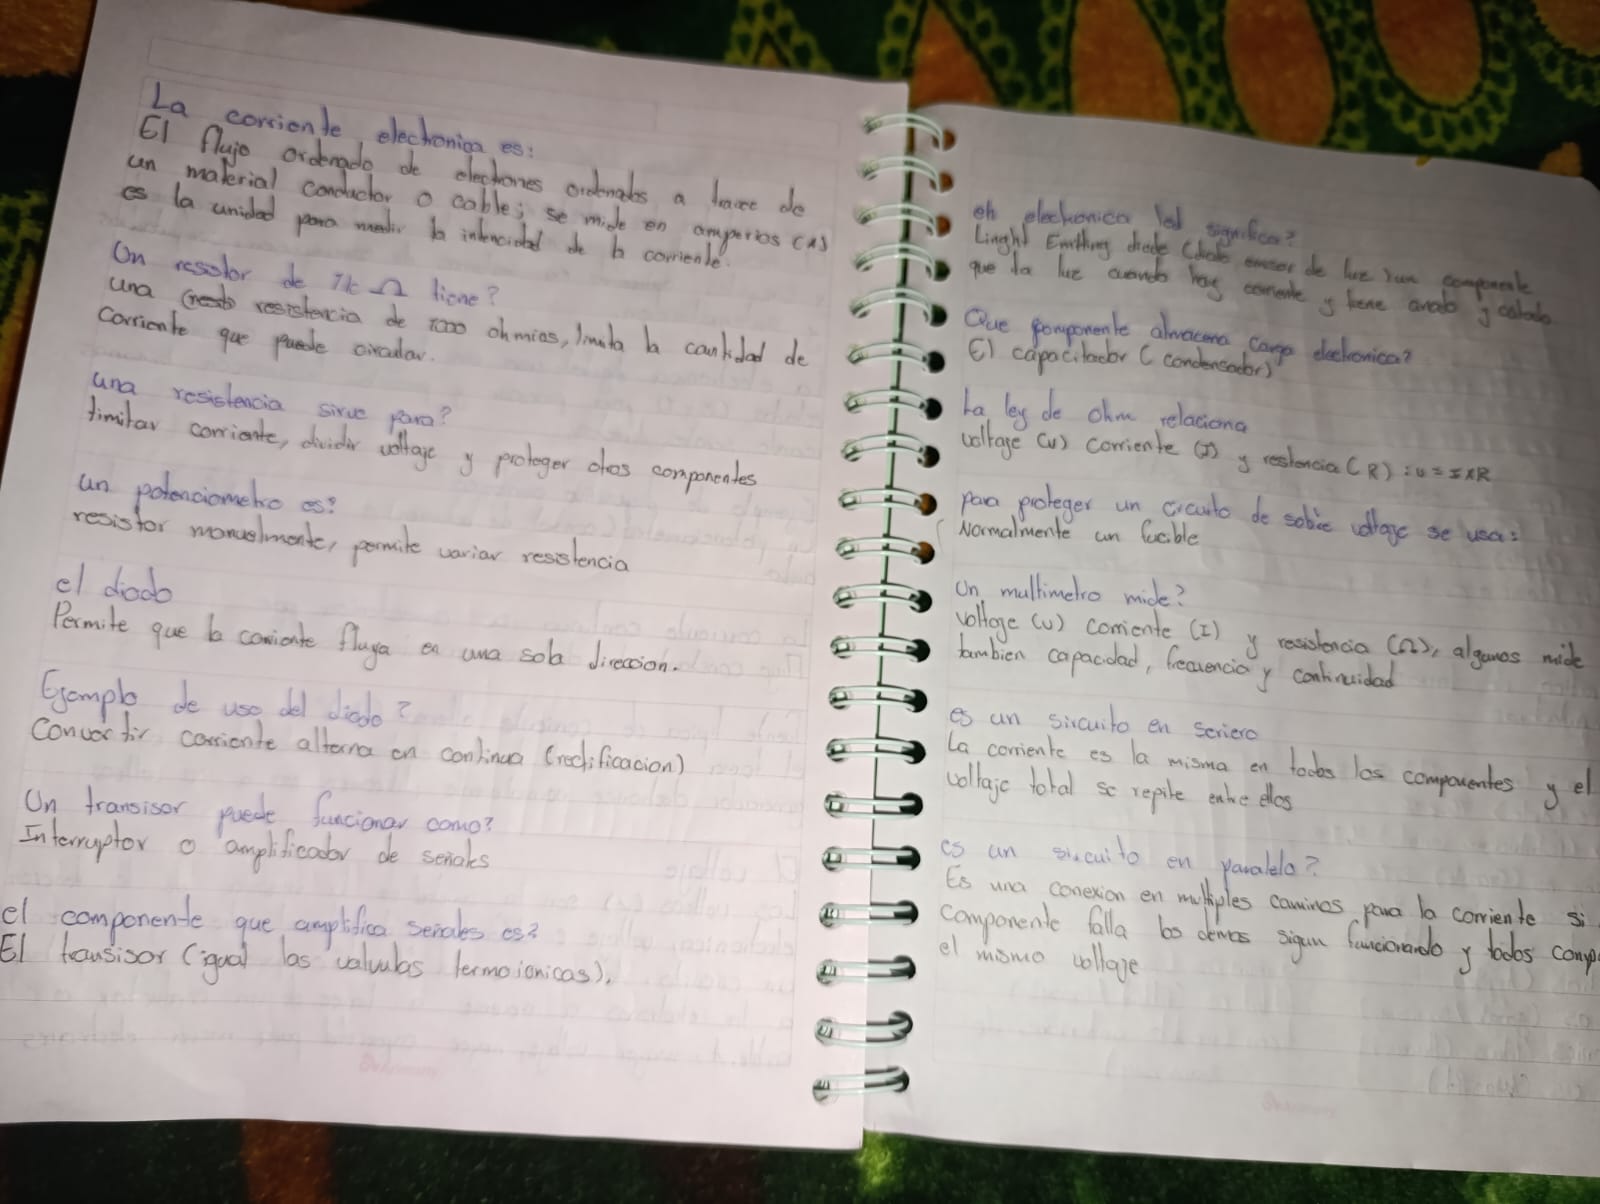 La corriente electronica es:
El flujo ordenado de electrones ordenados a travez de
un material conductor o cable; se mide en amperios (A)
es la unidad para medir la intencidad de la corriente.
Un resistor de 1k Ω tiene?
una resistencia de 1000 ohmios, limita la cantidad de
corriente que puede circular.
una resistencia sirve para?
limitar corriente, dividir voltaje y proteger otros componentes
un potenciometro es?
resistor manuelmente, permite variar resistencia
el diodo
Permite que la corriente fluya en una sola direccion.
Ejemplo de uso del diodo?
Convertir corriente alterna en continua (rectificacion)
Un transisor puede funcionar como?
Interruptor o amplificador de señales
el componente que amplifica señales es?
El transisor (igual las valvulas termoionicas).
en electronica led significa?
Linght Emitting diede (diodo emisor de luz) un componente
que da luz cuando hay corriente y tiene anodo y catodo
Que componente almacena carga electronica?
El capacitador (condensador)
La ley de ohm relaciona
voltaje (v) corriente (I) y restencia (R) : v = I x R
para proteger un circuito de sobre voltage se usa:
Normalmente un fucible
Un multimetro mide?
voltage (v) corriente (I) y resistencia (Ω), algunos mide
tambien capacidad, frecuencia y continuidad
es un sircuito en seriero
La corriente es la misma en todos los componentes y el
voltaje total se repite entre ellos
es un sircuito en paralelo?
Es una conexion en multiples caminos para la corriente si
componente falla los demas sigun funcionando y todos comp
el mismo voltage